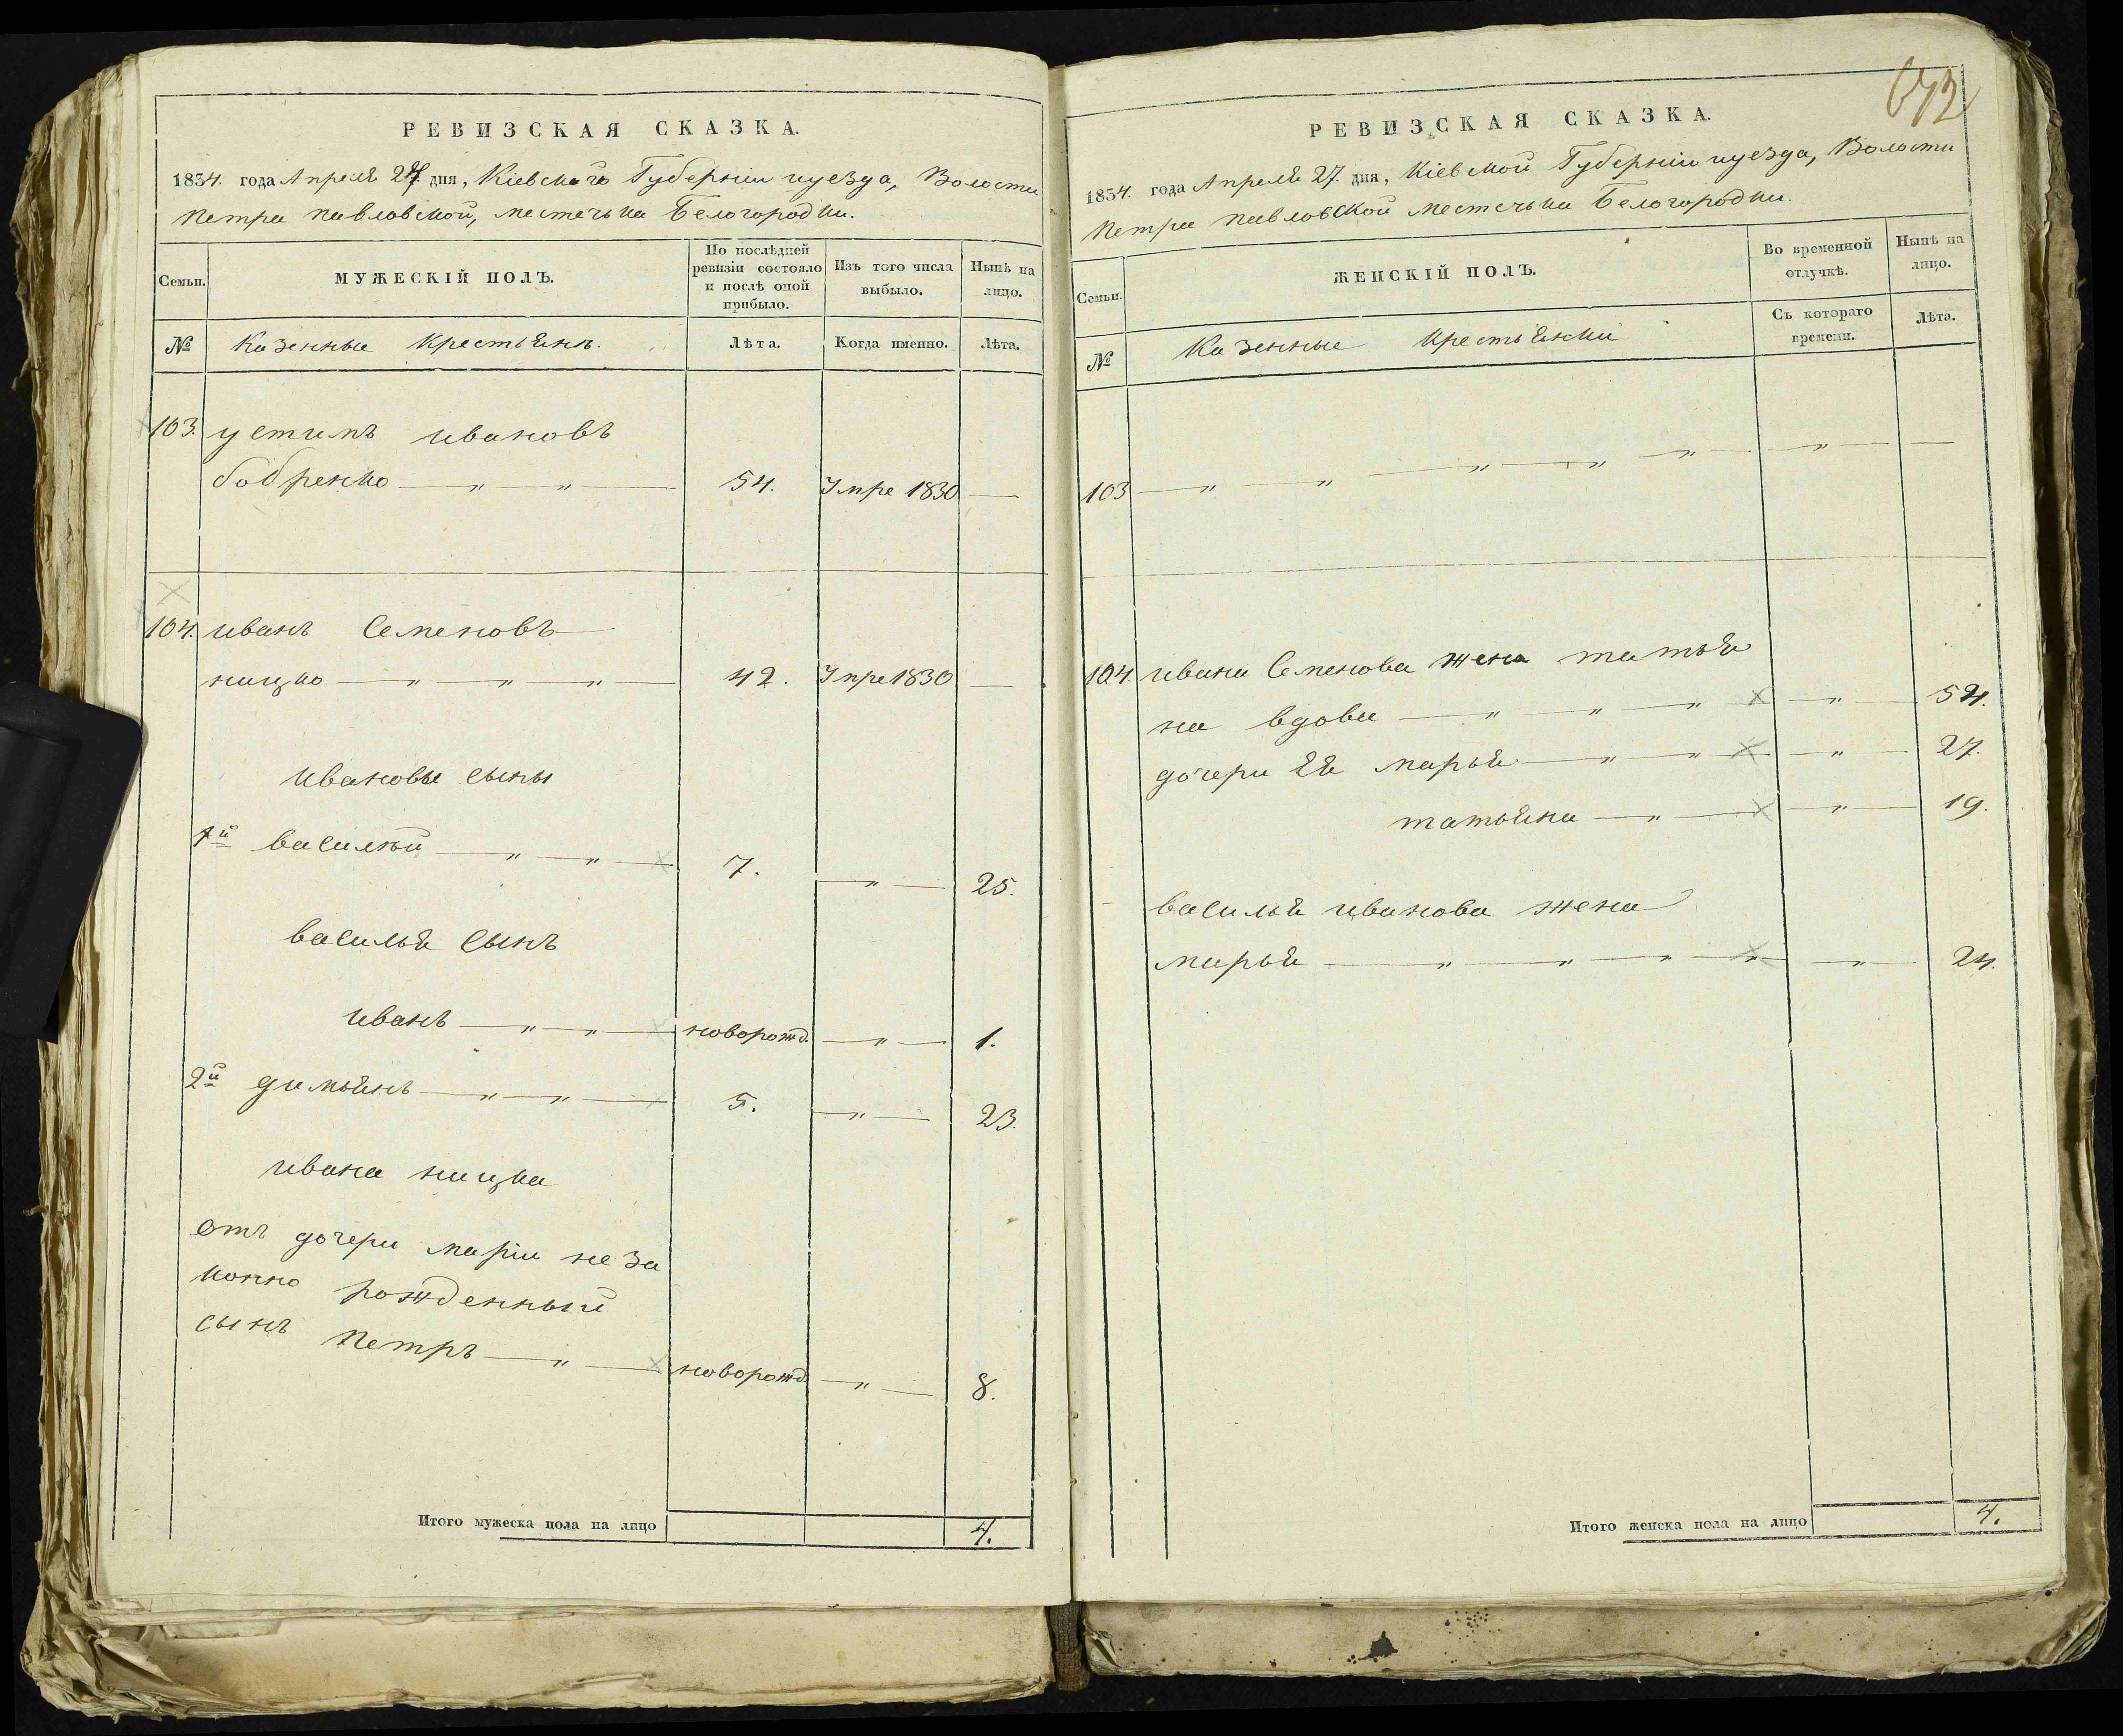 РЕВИЗСКАЯ СКАЗКА.
1834. года Апреля 27 дня, Кіевской Губерніи иуезда, Волости
Петра павловской, местечька Белогородки.
Семьи.
МУЖЕСКІЙ ПОЛЪ.
По послѣдней ревизіи состояло и послѣ оной прибыло.
Изъ того числа выбыло.
Нынѣ на лицо.
№
Казенные крестьянѣ.
Лѣта.
Когда именно.
Лѣта.
103. устимъ ивановъ
бобренко — „ — „ — 54. Умре 1830 —
104. иванъ Семеновъ
ницко — „ — „ — „ — 42. Умре 1830 —
ивановы сыны
1й василій — „ — „ — 7. — „ — 25.
василья сынъ
иванъ — „ — „ — новорожд. — „ — 1.
2й димьянъ — „ — „ — 5. — „ — 23.
ивана ницка
отъ дочери маріи неза
конно рожденный
сынъ Петръ — „ — новорожд. — „ — 8.
Итого мужеска пола на лицо 4.
672
РЕВИЗСКАЯ СКАЗКА.
1834. года Апреля 27. дня, Кіевской Губерніи иуезда, Волости
Петра павловской местечька Белогородки.
Семьи.
ЖЕНСКІЙ ПОЛЪ.
Во временной отлучкѣ.
Нынѣ на лицо.
№
Казенные крестьянки
Съ котораго времени.
Лѣта.
103 — „ — „ — „ — „ — „ — „ — —
104. ивана Семенова жена татья
на вдова — „ — „ — „ — „ — 54.
дочери Ея марья — „ — „ — „ — 27.
татьяна — „ — „ — 19.
василья иванова жена
марья — „ — „ — „ — „ — „ — 24.
Итого женска пола на лицо 4.